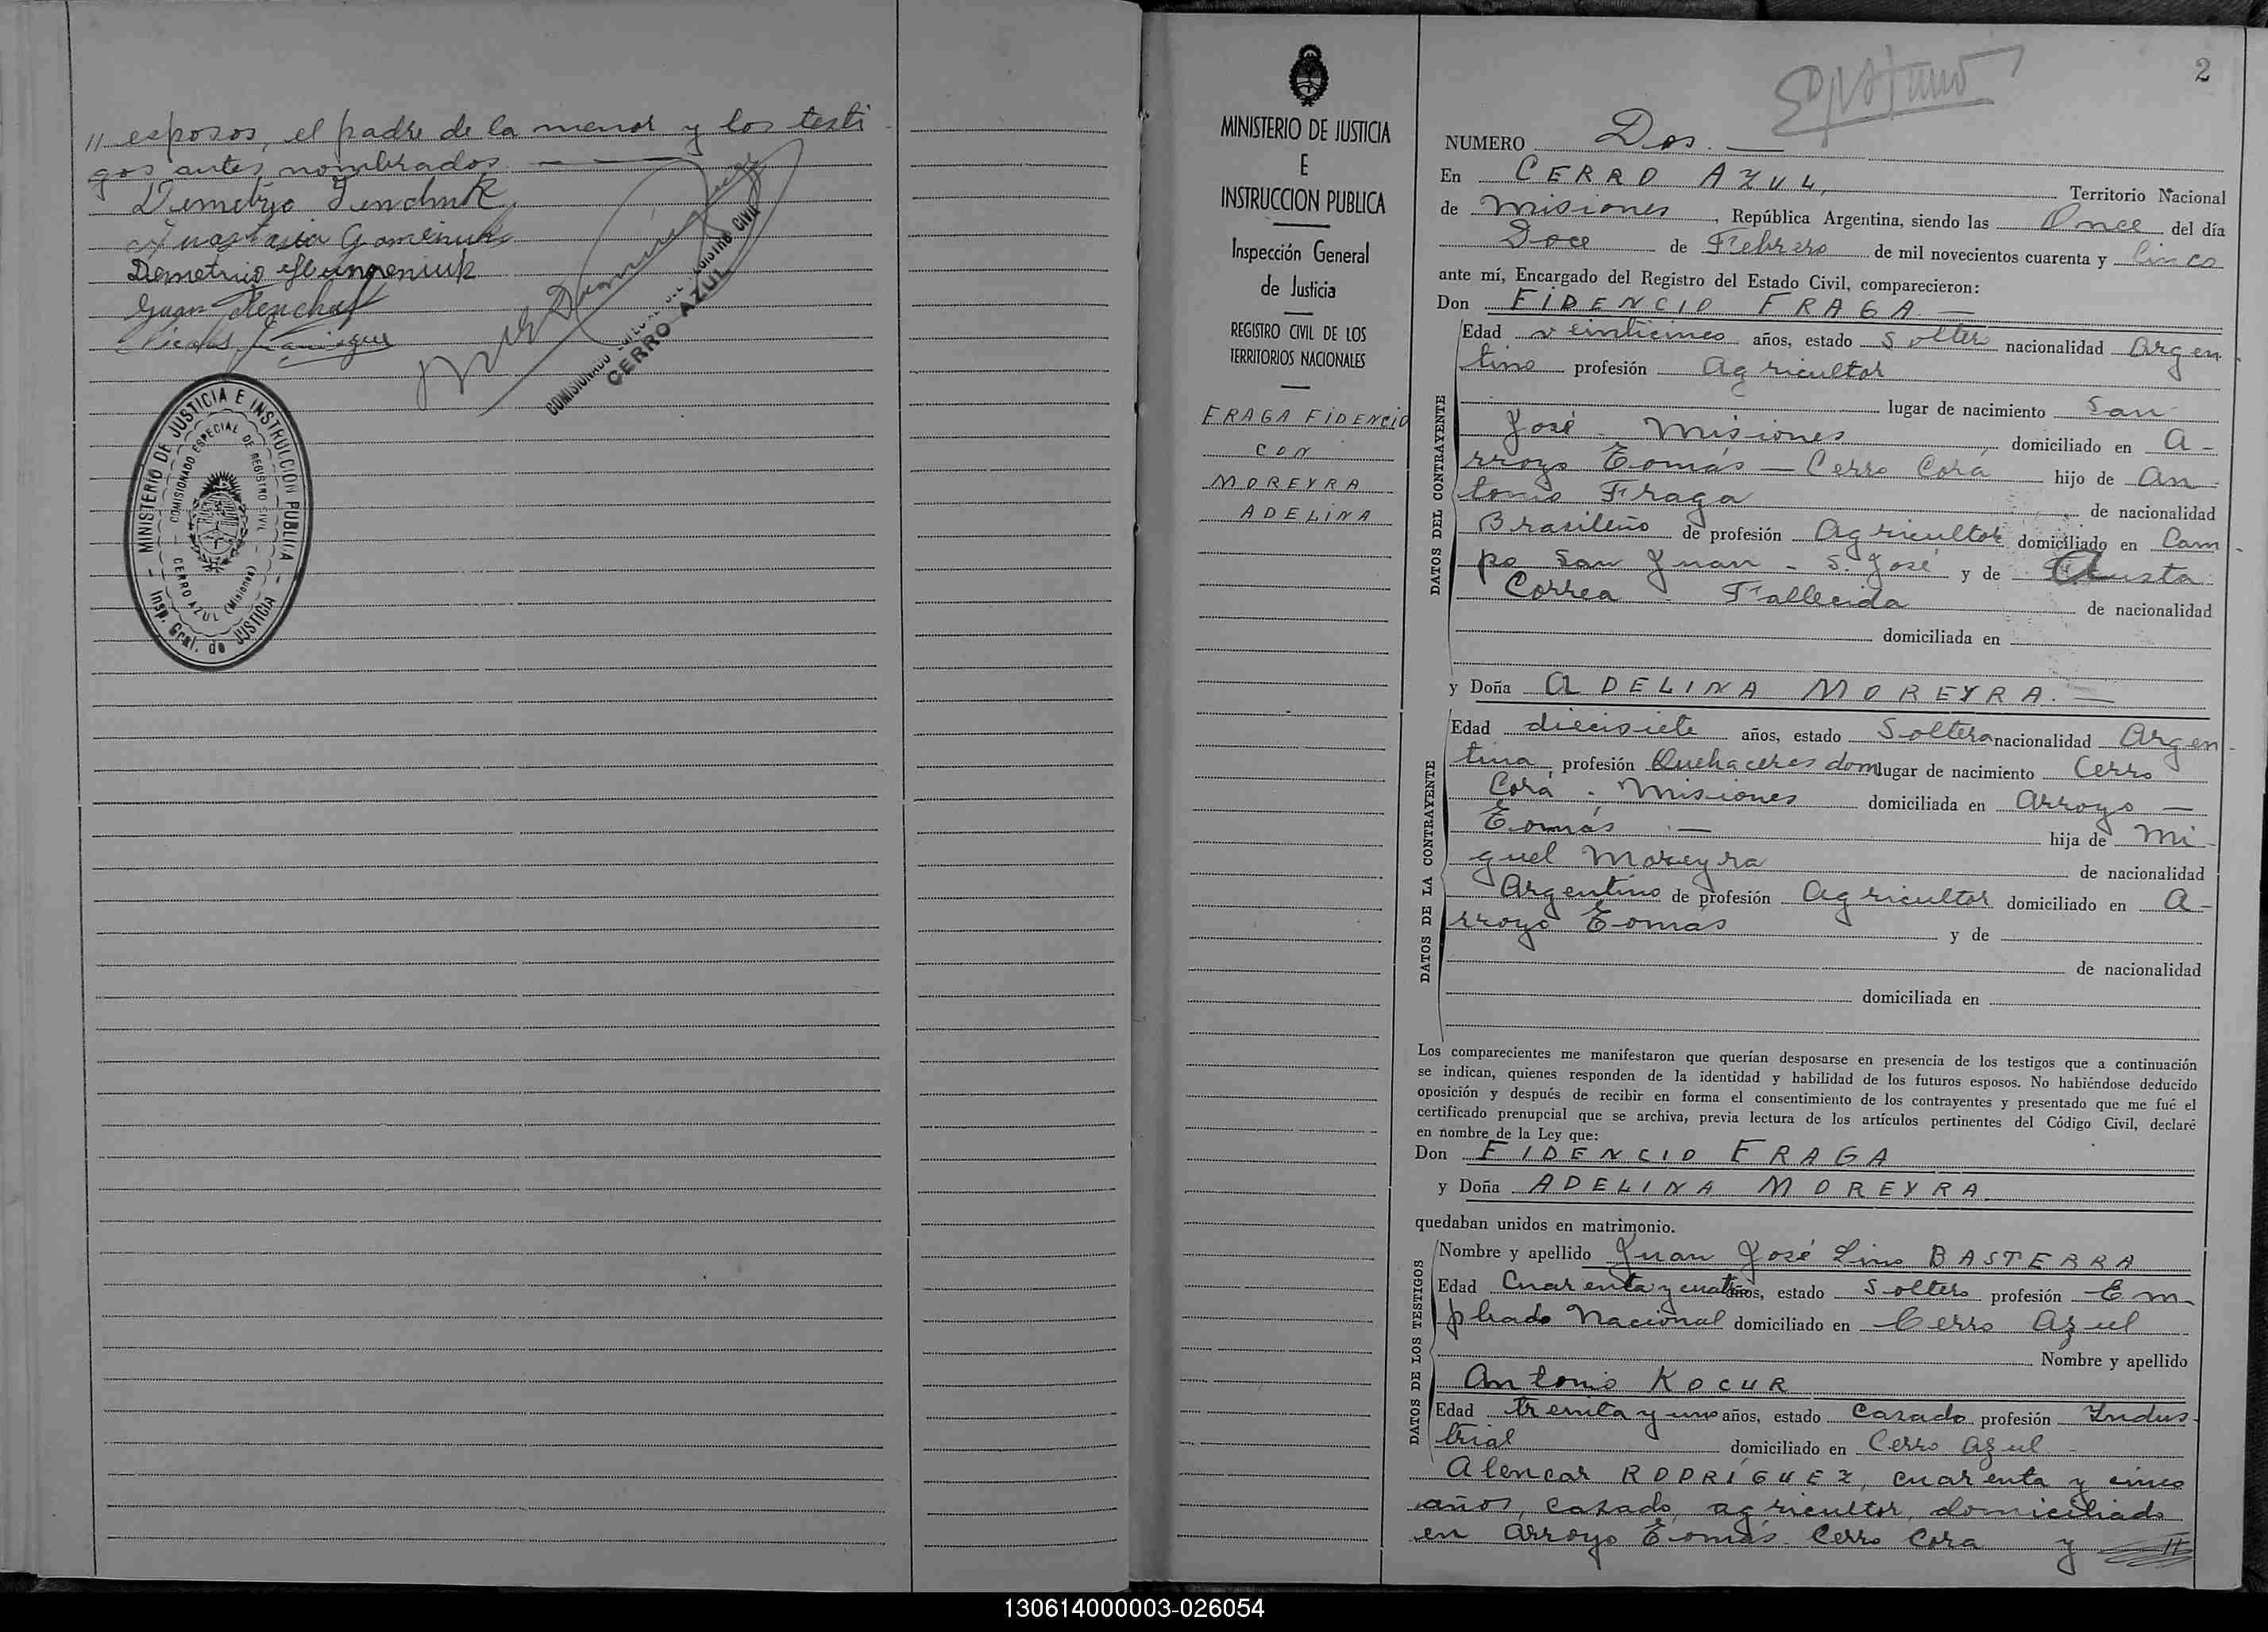 " esposos, el padre de la menor y los testi
gos antes nombrados. — —
Demetrio
Anastasia
Demetrio
Juan
Nicolas
COMISIONADO
REGISTRO CIVIL
CERRO AZUL
MINISTERIO DE JUSTICIA E INSTRUCCION PUBLICA
Insp. Gral. de JUSTICIA
COMISIONADO ESPECIAL DE REGISTRO CIVIL
CERRO AZUL (Misiones)
MINISTERIO DE JUSTICIA
E
INSTRUCCION PUBLICA
Inspección General
de Justicia
REGISTRO CIVIL DE LOS
TERRITORIOS NACIONALES
FRAGA FIDENCIO
CON
MOREYRA
ADELINA
2
NUMERO Dos. —
En CERRO AZUL, Territorio Nacional
de Misiones, República Argentina, siendo las Once del día
Doce de Febrero de mil novecientos cuarenta y Cinco
ante mí, Encargado del Registro del Estado Civil, comparecieron:
Don FIDENCIO FRAGA. —
DATOS DEL CONTRAYENTE
Edad veinticinco años, estado Soltero nacionalidad Argen
tino profesión Agricultor
lugar de nacimiento San
José - Misiones domiciliado en A-
rroyo Tomás — Cerro Corá hijo de An-
tonio Fraga de nacionalidad
Brasileño de profesión Agricultor domiciliado en Cam-
po San Juan - S. José y de
Correa - Fallecida de nacionalidad
domiciliada en
y Doña ADELINA MOREYRA. —
DATOS DE LA CONTRAYENTE
Edad diecisiete años, estado Soltera nacionalidad Argen-
tina, profesión Quehaceres dom lugar de nacimiento Cerro
Corá - Misiones domiciliada en Arroyo —
Tomás. — hija de Mi-
guel Moreyra de nacionalidad
Argentino de profesión Agricultor domiciliado en A-
rroyo Tomás y de
de nacionalidad
domiciliada en
Los comparecientes me manifestaron que querían desposarse en presencia de los testigos que a continuación
se indican, quienes responden de la identidad y habilidad de los futuros esposos. No habiéndose deducido
oposición y después de recibir en forma el consentimiento de los contrayentes y presentado que me fué el
certificado prenupcial que se archiva, previa lectura de los artículos pertinentes del Código Civil, declaré
en nombre de la Ley que:
Don FIDENCIO FRAGA
y Doña ADELINA MOREYRA.
quedaban unidos en matrimonio.
DATOS DE LOS TESTIGOS
Nombre y apellido Juan José Lino BASTERRA
Edad Cuarenta y cuatro años, estado Soltero profesión Em-
pleado Nacional domiciliado en Cerro Azul
Nombre y apellido
Antonio KOCUR
Edad treinta y uno años, estado Casado profesión Indus-
trial domiciliado en Cerro Azul -
Alencar RODRÍGUEZ, cuarenta y cinco
años, casado, agricultor, domiciliado
en Arroyo Tomás. Cerro Cora y "
130614000003-026054